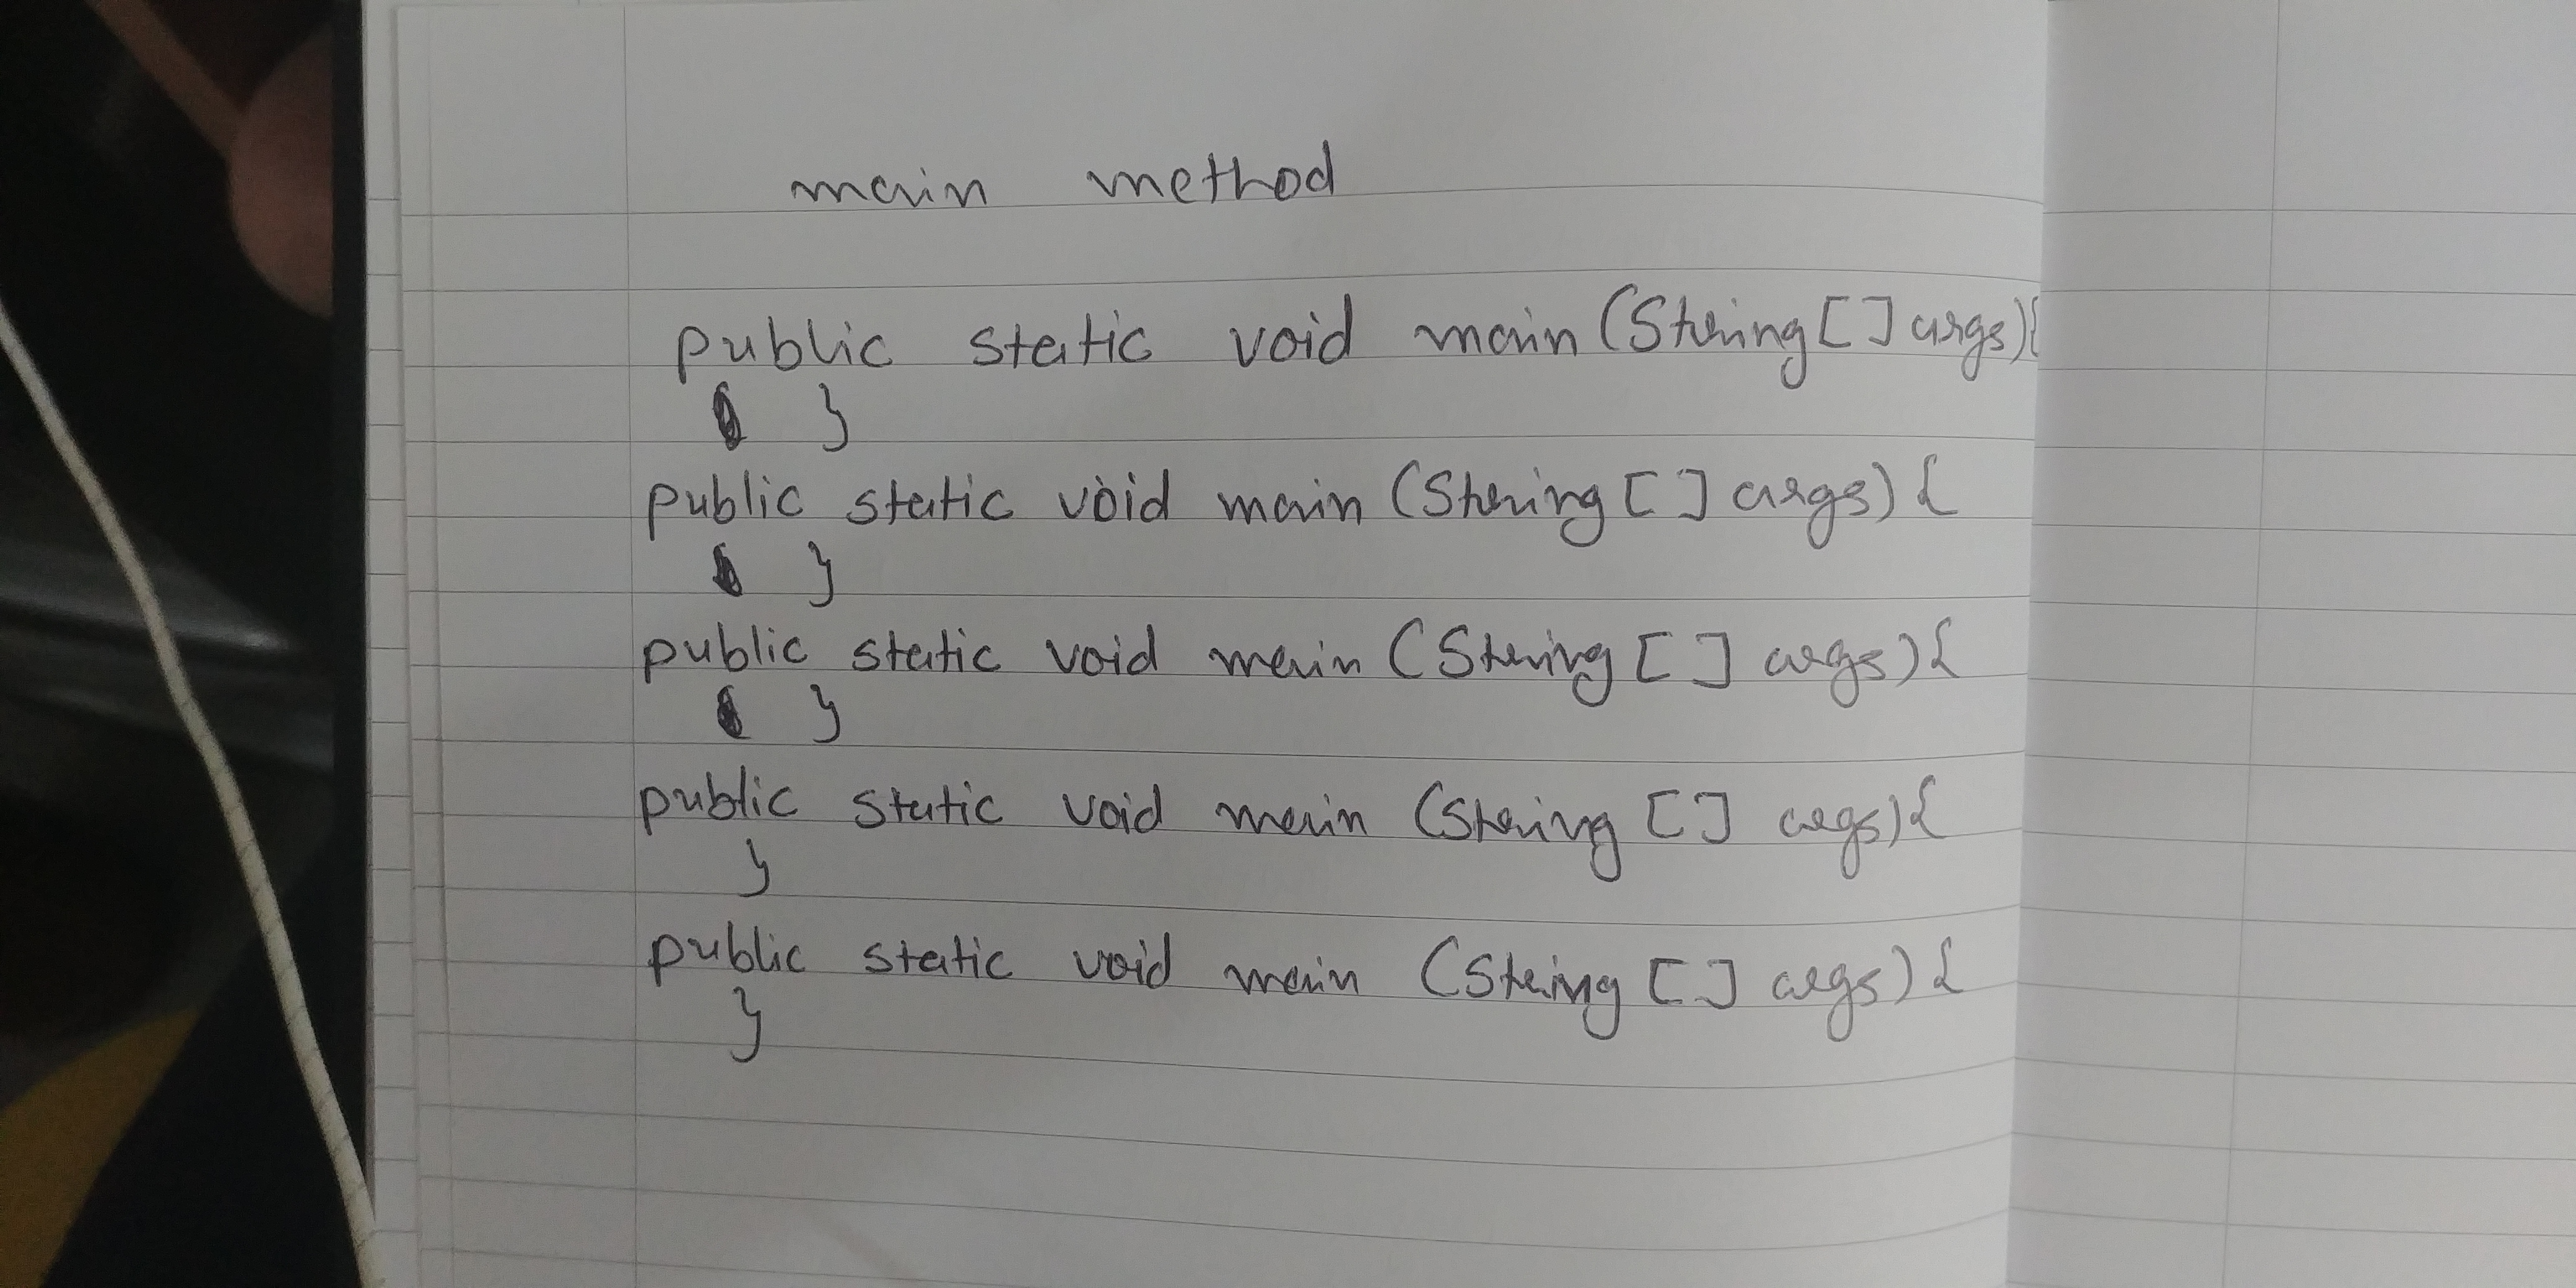 main method
public static void main (String [ ] args){
}
public static void main (String [ ] args) {
}
public static void main (String [ ] args) {
}
public static void main (String [ ] args) {
}
public static void main (String [ ] args) {
}